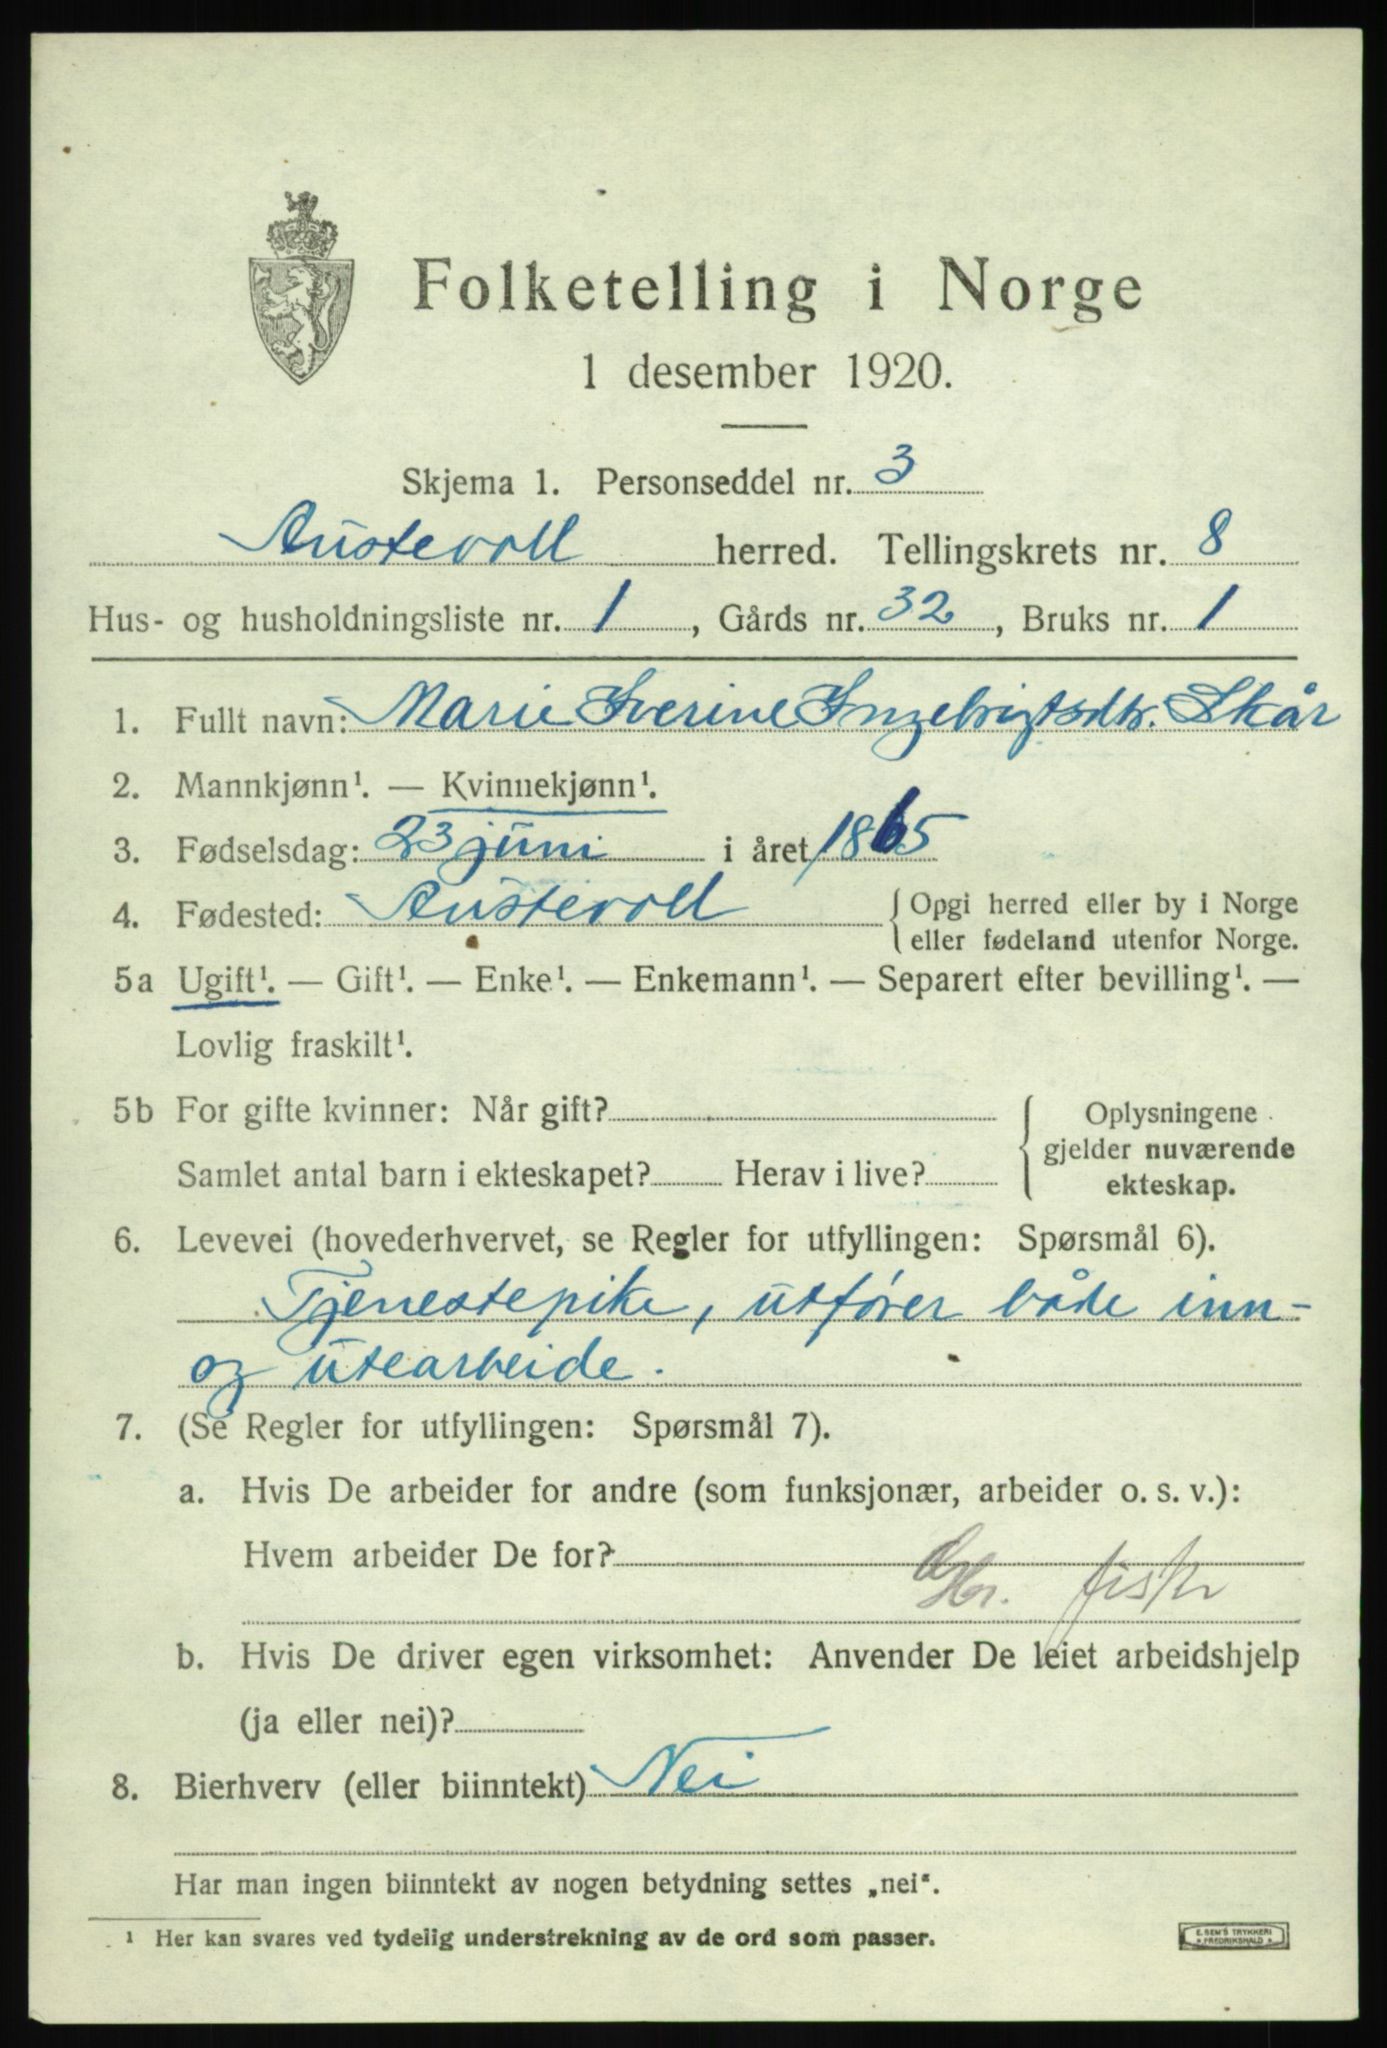 Folketelling i Norge
1 desember 1920.
Skjema 1. Personseddel nr. 3
Austevoll herred. Tellingskrets nr. 8
Hus- og husholdningsliste nr. 1, Gårds nr. 32, Bruks nr. 1
1. Fullt navn: Marie Iverine Ingebrigtsdtr. Skår
2. Mannkjønn¹. — Kvinnekjønn¹.
3. Fødselsdag: 23 juni i året 1865
4. Fødested: Austevoll { Opgi herred eller by i Norge
eller fødeland utenfor Norge.
5a Ugift¹. — Gift¹. — Enke¹. — Enkemann¹. — Separert efter bevilling¹. —
Lovlig fraskilt¹.
5b For gifte kvinner: Når gift? { Oplysningene
gjelder nuværende
Samlet antal barn i ekteskapet? Herav i live? ekteskap.
6. Levevei (hovederhvervet, se Regler for utfyllingen: Spørsmål 6).
Tjenestepike, utfører både inn-
og utearbeide.
7. (Se Regler for utfyllingen: Spørsmål 7).
a. Hvis De arbeider for andre (som funksjonær, arbeider o. s. v.):
Hvem arbeider De for?
fisk
b. Hvis De driver egen virksomhet: Anvender De leiet arbeidshjelp
(ja eller nei)?
8. Bierhverv (eller biinntekt) Nei
Har man ingen biinntekt av nogen betydning settes „nei“.
¹ Her kan svares ved tydelig understrekning av de ord som passer.
E. SEM'S TRYKKERI
FREDRIKSHALD